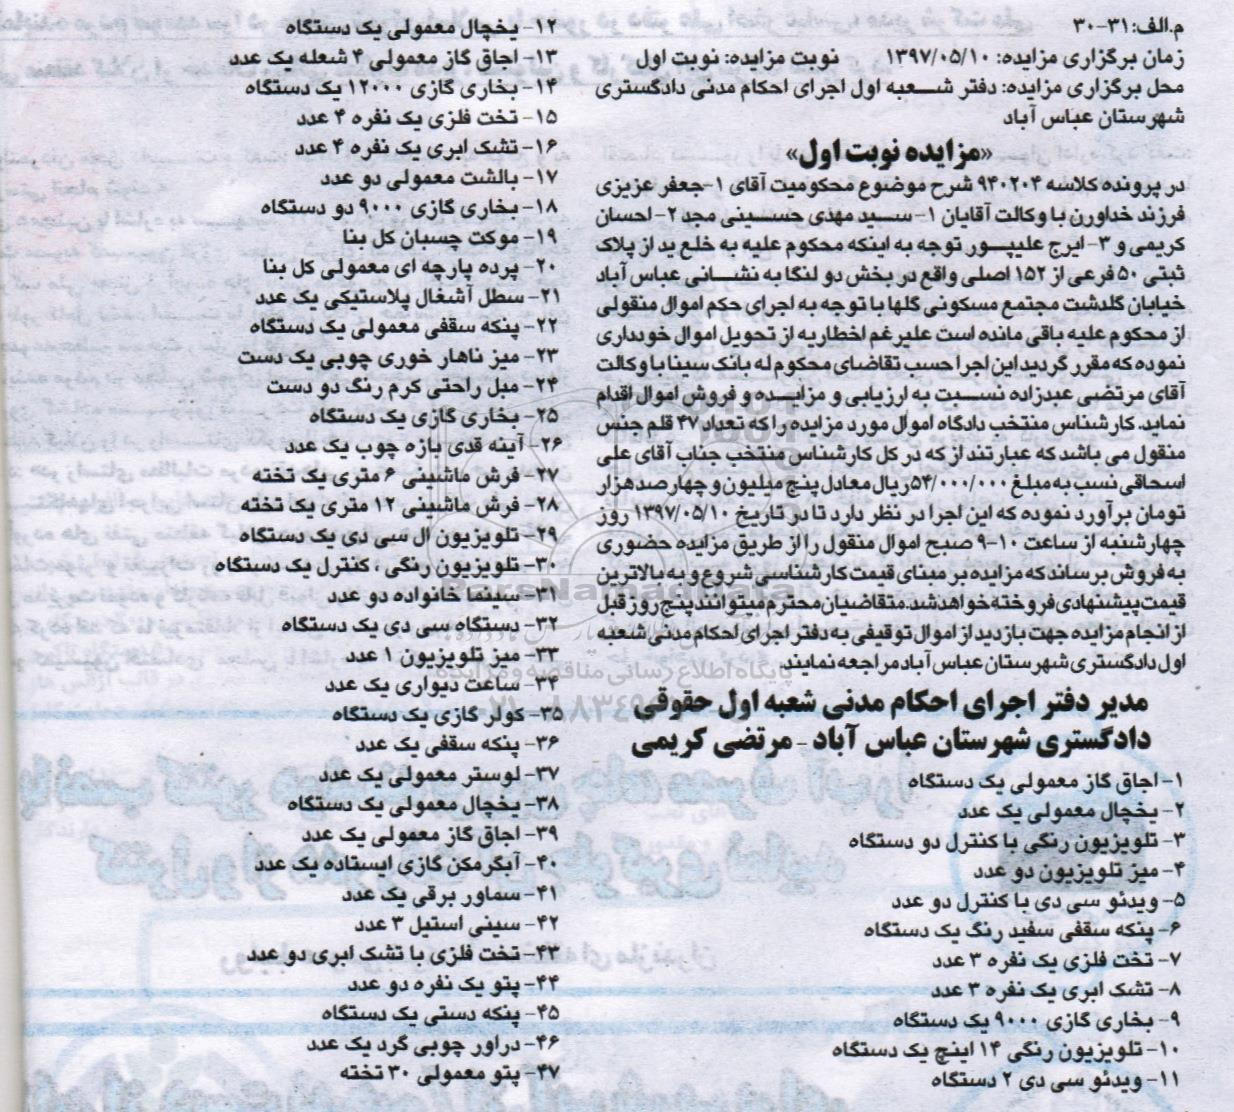 م.الف:۳۱-۳۰
زمان برگزاری مزایده: ۱۳۹۷/۰۵/۱۰ نوبت مزایده: نوبت اول
محل برگزاری مزایده: دفتر شعبه اول اجرای احکام مدنی دادگستری
شهرستان عباس آباد
«مزایده نوبت اول»
در پرونده کلاسه ۹۴۰۲۰۴ شرح موضوع محکومیت آقای ۱-جعفر عزیزی
فرزند خداورن با وکالت آقایان ۱- سید مهدی حسینی مجد ۲- احسان
کریمی و ۳- ایرج علیپور توجه به اینکه محکوم علیه به خلع ید از پلاک
ثبتی ۵۰ فرعی از ۱۵۲ اصلی واقع در بخش دو لنگا به نشانی عباس آباد
خیابان گلدشت مجتمع مسکونی گلها با توجه به اجرای حکم اموال منقولی
از محکوم علیه باقی مانده است علیرغم اخطاریه از تحویل اموال خودداری
نموده که مقرر گردید این اجرا حسب تقاضای محکوم له بانک سینا با وکالت
آقای مرتضی عبدزاده نسبت به ارزیابی و مزایده و فروش اموال اقدام
نماید. کارشناس منتخب دادگاه اموال مورد مزایده را که تعداد ۴۷ قلم جنس
منقول می باشد که عبارتند از که در کل کارشناس منتخب جناب آقای علی
اسحاقی نسب به مبلغ ۵۴/۰۰۰/۰۰۰ریال معادل پنج میلیون و چهارصد هزار
تومان برآورد نموده که این اجرا در نظر دارد تا در تاریخ ۱۳۹۷/۰۵/۱۰ روز
چهارشنبه از ساعت ۱۰-۹ صبح اموال منقول را از طریق مزایده حضوری
به فروش برساند که مزایده بر مبنای قیمت کارشناسی شروع و به بالاترین
قیمت پیشنهادی فروخته خواهد شد. متقاضیان محترم میتوانند پنج روز قبل
از انجام مزایده جهت بازدید از اموال توقیفی به دفتر اجرای احکام مدنی شعبه
اول دادگستری شهرستان عباس آباد مراجعه نمایند.
مدیر دفتر اجرای احکام مدنی شعبه اول حقوقی
دادگستری شهرستان عباس آباد - مرتضی کریمی
۱- اجاق گاز معمولی یک دستگاه
۲- یخچال معمولی یک عدد
۳- تلویزیون رنگی با کنترل دو دستگاه
۴- میز تلویزیون دو عدد
۵- ویدئو سی دی با کنترل دو عدد
۶- پنکه سقفی سفید رنگ یک دستگاه
۷- تخت فلزی یک نفره ۳ عدد
۸- تشک ابری یک نفره ۳ عدد
۹- بخاری گازی ۹۰۰۰ یک دستگاه
۱۰- تلویزیون رنگی ۱۴ اینچ یک دستگاه
۱۱- ویدئو سی دی ۲ دستگاه
۱۲- یخچال معمولی یک دستگاه
۱۳- اجاق گاز معمولی ۴ شعله یک عدد
۱۴- بخاری گازی ۱۲۰۰۰ یک دستگاه
۱۵- تخت فلزی یک نفره ۴ عدد
۱۶- تشک ابری یک نفره ۴ عدد
۱۷- بالشت معمولی دو عدد
۱۸- بخاری گازی ۹۰۰۰ دو دستگاه
۱۹- موکت چسبان کل بنا
۲۰- پرده پارچه ای معمولی کل بنا
۲۱- سطل آشغال پلاستیکی یک عدد
۲۲- پنکه سقفی معمولی یک دستگاه
۲۳- میز ناهار خوری چوبی یک دست
۲۴- مبل راحتی کرم رنگ دو دست
۲۵- بخاری گازی یک دستگاه
۲۶- آینه قدی بازه چوب یک عدد
۲۷- فرش ماشینی ۶ متری یک تخته
۲۸- فرش ماشینی ۱۲ متری یک تخته
۲۹- تلویزیون ال سی دی یک دستگاه
۳۰- تلویزیون رنگی ، کنترل یک دستگاه
۳۱- سینما خانواده دو عدد
۳۲- دستگاه سی دی یک دستگاه
۳۳- میز تلویزیون ۱ عدد
۳۴- ساعت دیواری یک عدد
۳۵- کولر گازی یک دستگاه
۳۶- پنکه سقفی یک عدد
۳۷- لوستر معمولی یک عدد
۳۸- یخچال معمولی یک دستگاه
۳۹- اجاق گاز معمولی یک عدد
۴۰- آبگرمکن گازی ایستاده یک عدد
۴۱- سماور برقی یک عدد
۴۲- سینی استیل ۳ عدد
۴۳- تخت فلزی با تشک ابری دو عدد
۴۴- پتو یک نفره دو عدد
۴۵- پنکه دستی یک دستگاه
۴۶- دراور چوبی گرد یک عدد
۴۷- پتو معمولی ۳۰ تخته
ParsNamadData
پایگاه اطلاع رسانی مناقصه و مزایده